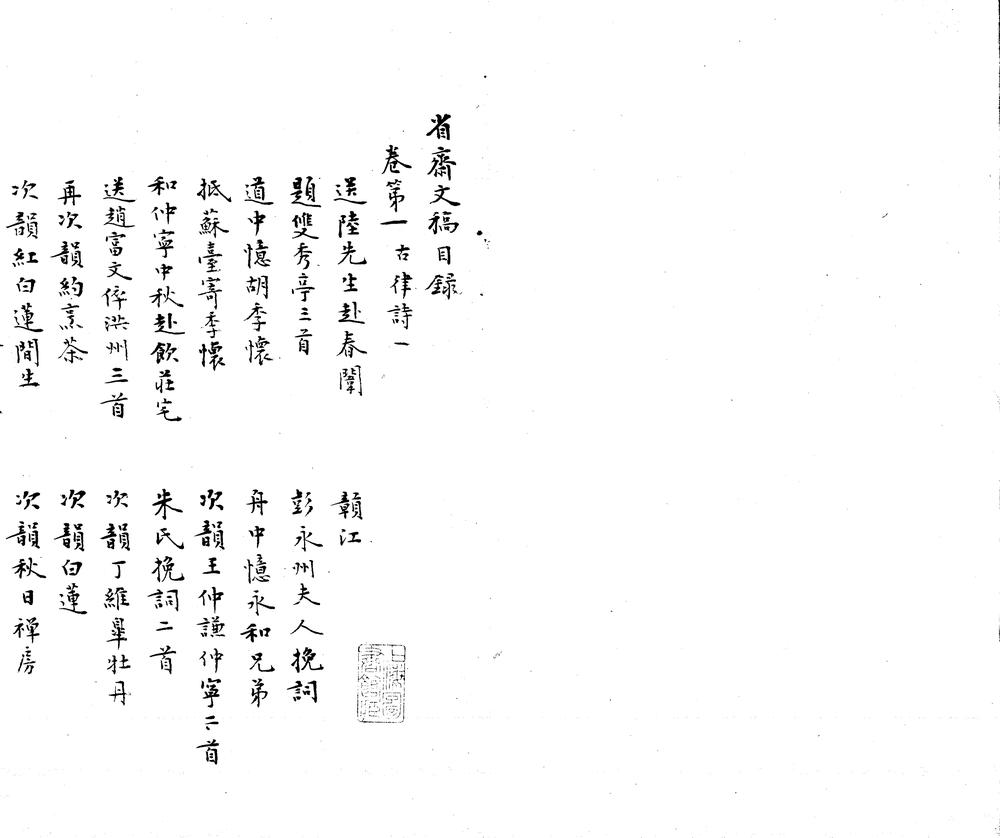 省齋文稿目錄
卷第一 古律詩一
送陸先生赴春闈 贛江
題雙秀亭三首 彭永州夫人挽詞
道中憶胡季懷 舟中憶永和兄弟
抵蘇臺寄季懷 次韻王仲謙仲寧二首
和仲寧中秋赴飲莊宅 朱氏挽詞二首
送趙富文倅洪州三首 次韻丁維皐牡丹
再次韻約烹茶 次韻白蓮
次韻紅白蓮間生 次韻秋日禪房